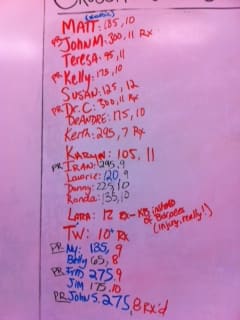 MATT: 185, 10
PR JOHN M: 300, 11 Rx
TERESA: 95, 11
PR Kelly: 175, 10
SUSAN: 125, 12
PR Dr. C: 300, 11 Rx
DEANDRE: 175, 10
Keith: 295, 7 Rx
KARYN: 105, 11
PR IRAN: 295, 9
Laurie: 120, 9
Danny: 225, 10
Ronda: 135, 10
LARA: 12 Rx - KB instead of Burpees
(injury, really!)
TW: 10* Rx
PR NJ: 135, 9
Betty 65, 8
PR Fritz 275, 9
JIM 175, 10
PR JOHN S. 275, 8 Rx'd